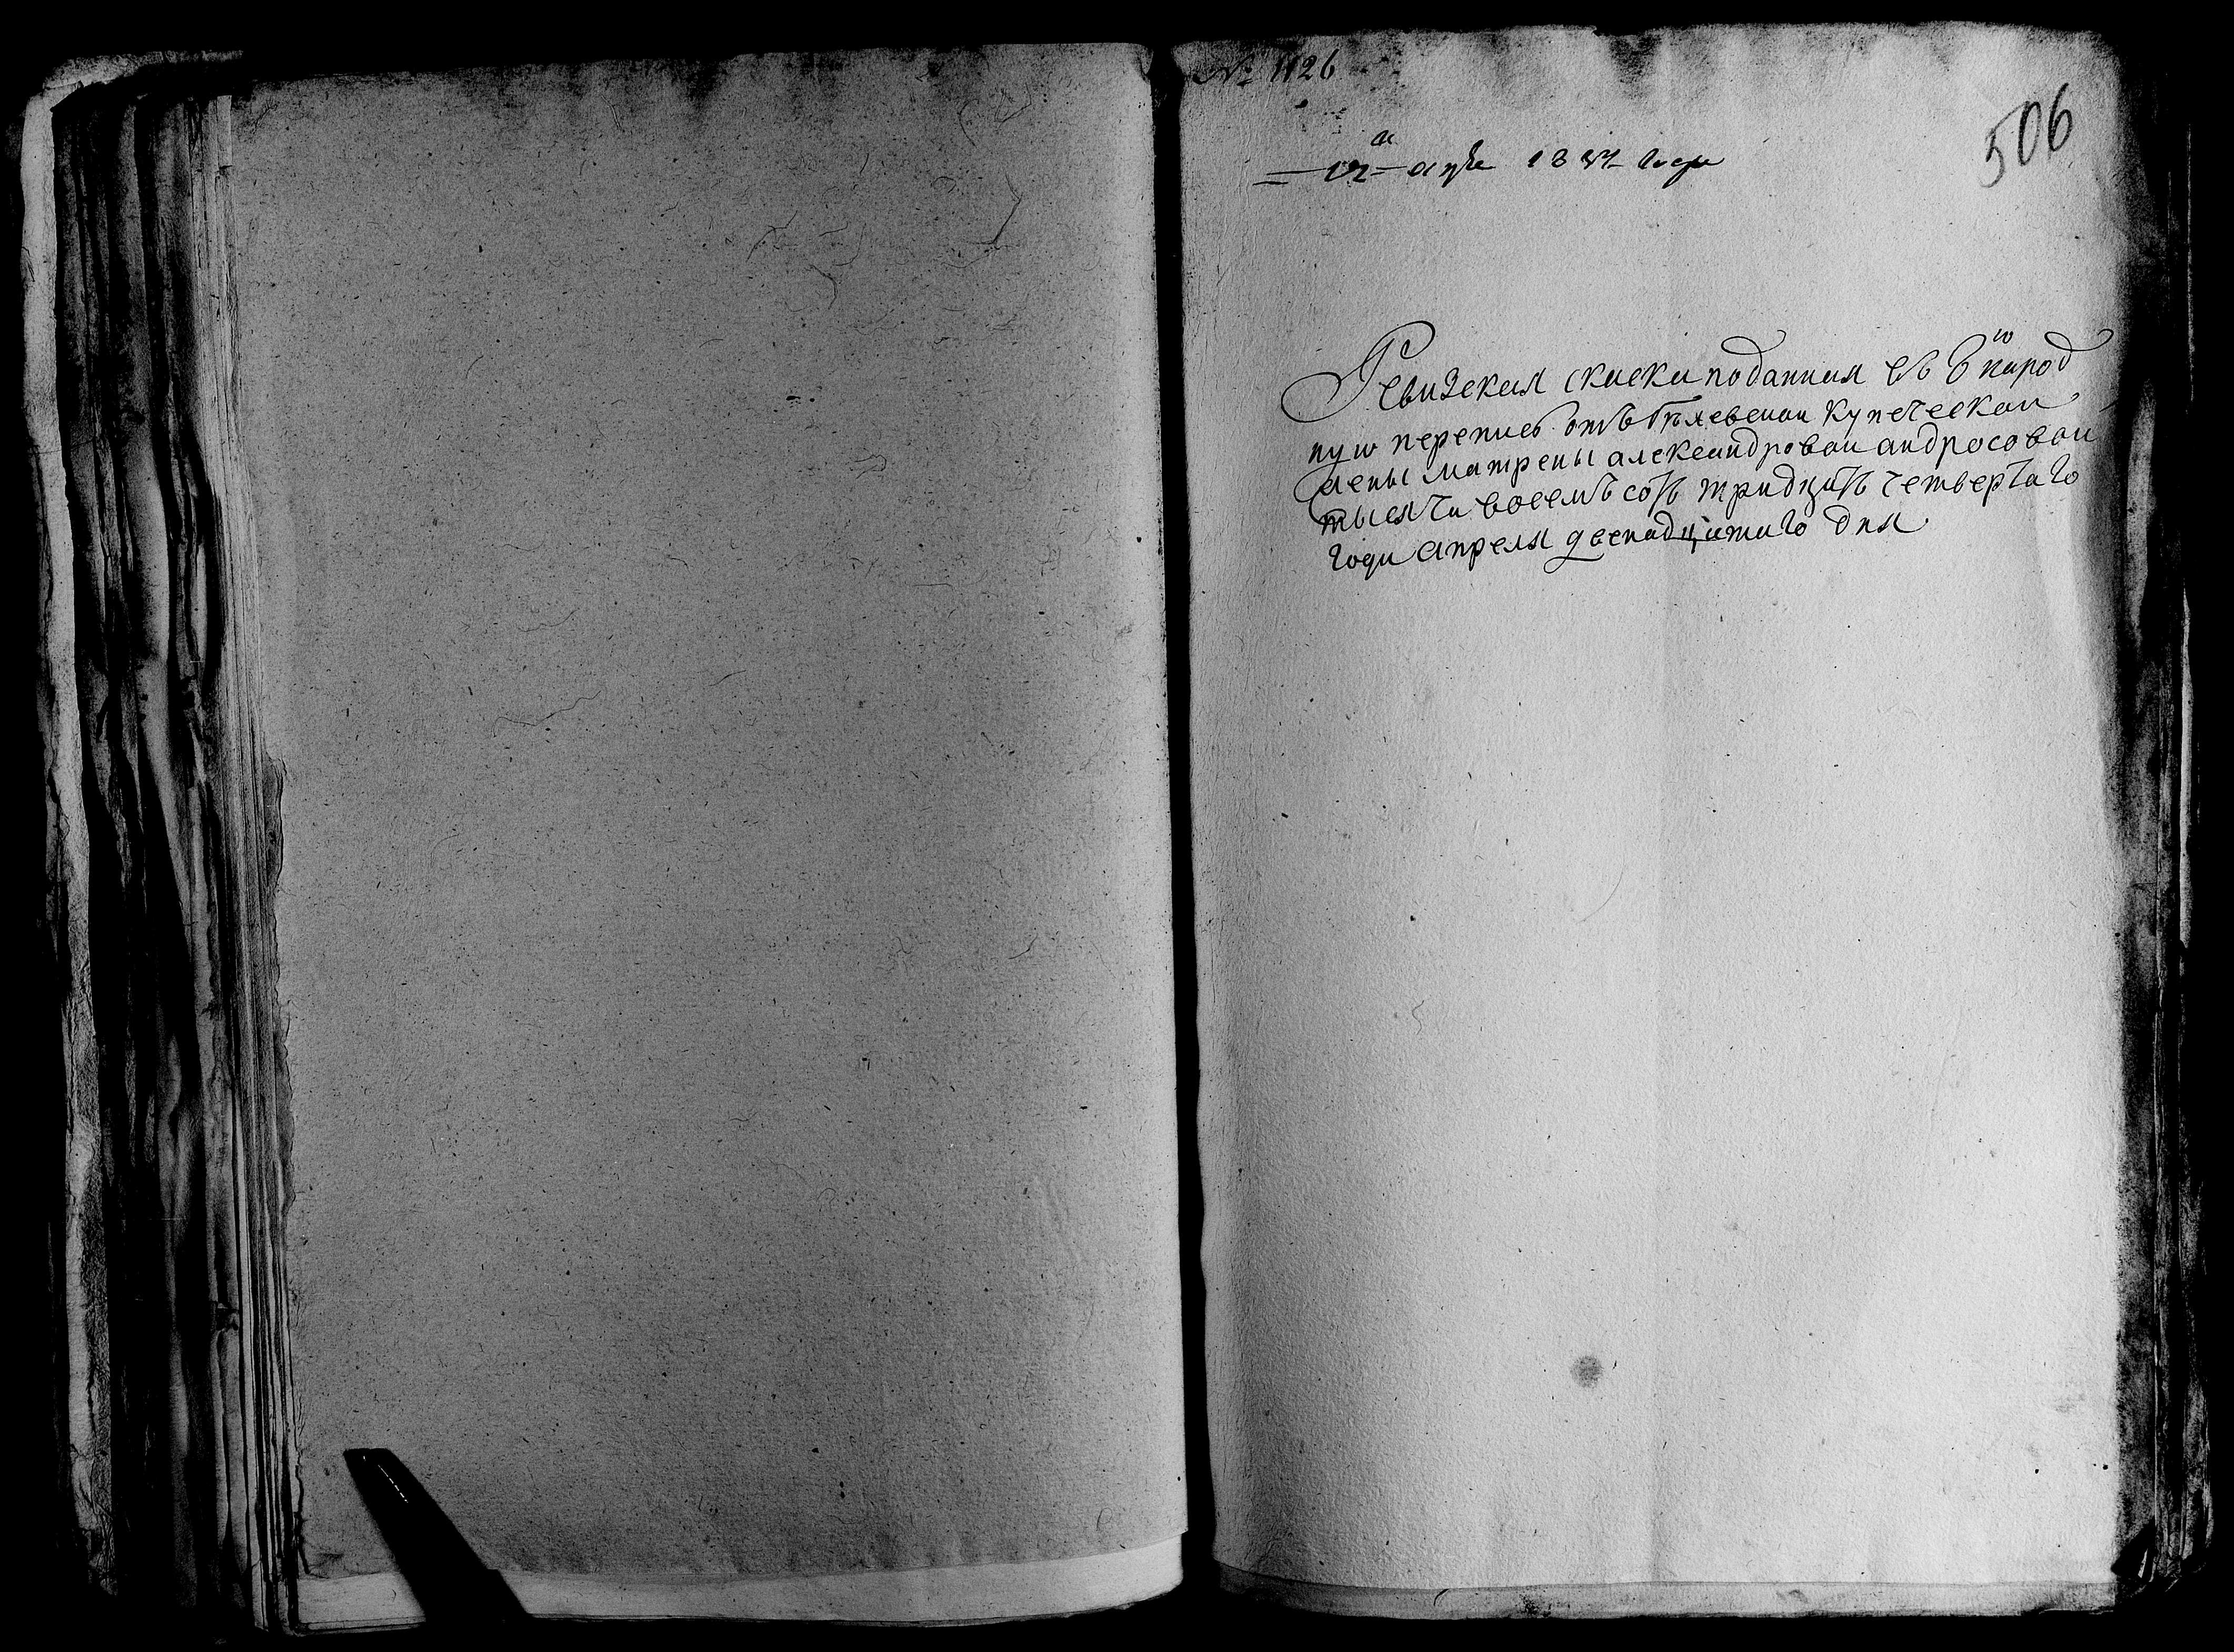 № 1126
506
12го апре 1834 года
Ревизская скаска поданная въ 8ю народ
ную перепись отъ Белевской купеческой
жены матрены александровой андросовой
тысяча восемь сотъ тридцать четвертаго
года апреля двенадцатаго дня